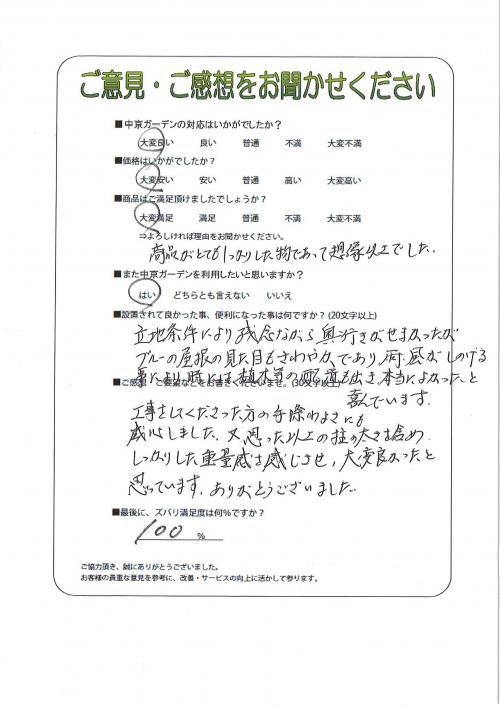 ご意見・ご感想をお聞かせください
■中京ガーデンの対応はいかがでしたか？
大変良い 良い 普通 不満 大変不満
■価格はいかがでしたか？
大変安い 安い 普通 高い 大変高い
■商品はご満足頂けましたでしょうか？
大変満足 満足 普通 不満 大変不満
⇒よろしければ理由をお聞かせください。
商品がとてもしっかりした物であって想像以上でした。
■また中京ガーデンを利用したいと思いますか？
はい どちらとも言えない いいえ
■設置されて良かった事、便利になった事は何ですか？(20文字以上)
立地条件により残念ながら奥行きがせまかったが
ブルーの屋根の見た目もさわやかであり、雨、風がしのげる
事により、時には植木等の も出き、本当によかったと
喜んでいます。
■ご感想・ご要望などをお書きくださいませ。(30文字以上)
工事をしてくださった方の手際のよさにも
感心しました、又、思った以上の柱の太さも含め
しっかりした重量感を感じさせ、大変良かったと
思っています。ありがとうございました。
■最後に、ズバリ満足度は何％ですか？
100 ％
ご協力頂き、誠にありがとうございました。
お客様の貴重な意見を参考に、改善・サービスの向上に活かして参ります。